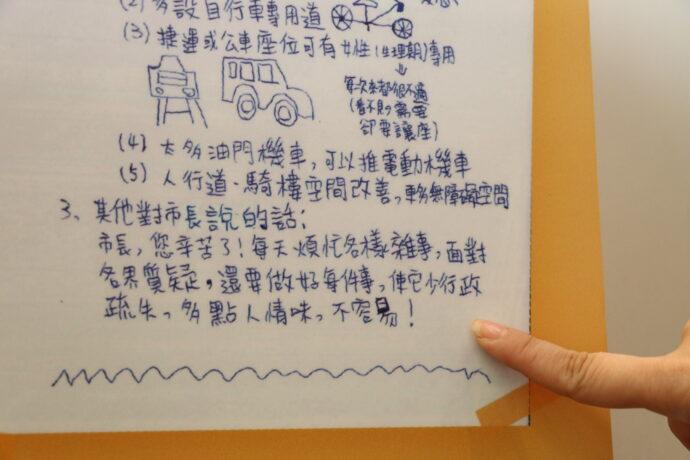 (2) 多設自行車專用道
(3) 捷運或公車座位可有女性(生理期)專用
每次來都很不適
(看不見,需要
卻要讓座)
(4) 太多油門機車,可以推電動機車
(5) 人行道、騎樓空間改善,更多無障礙空間
3、其他對市長說的話:
市長,您辛苦了!每天煩忙各樣雜事,面對
各界質疑,還要做好每件事,使它少行政
疏失,多點人情味,不容易!